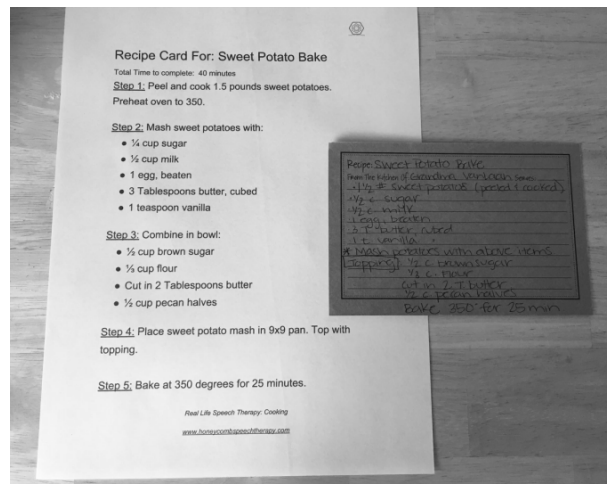 Recipe Card For: Sweet Potato Bake
Total Time to complete: 40 minutes
Step 1: Peel and cook 1.5 pounds sweet potatoes.
Preheat oven to 350.
Step 2: Mash sweet potatoes with:
• ¼ cup sugar
• ½ cup milk
• 1 egg, beaten
• 3 Tablespoons butter, cubed
• 1 teaspoon vanilla
Step 3: Combine in bowl:
• ½ cup brown sugar
• ⅓ cup flour
• Cut in 2 Tablespoons butter
• ½ cup pecan halves
Step 4: Place sweet potato mash in 9x9 pan. Top with
topping.
Step 5: Bake at 350 degrees for 25 minutes.
Real Life Speech Therapy: Cooking
www.honeycombspeechtherapy.com
Recipe: Sweet Potato Bake
From the Kitchen of Serves
1½ # sweet potatoes (peeled + cooked)
c. sugar
½ c. milk
1 egg, beaten
3 T butter, cubed
1 t. vanilla
* Mash potatoes with above items
Topping ½ c. brown sugar
c. flour
cut in 2 T. butter
½ c. pecan halves
Bake 350° for 25 min